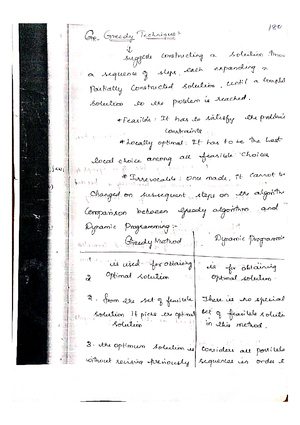 180
Greedy Technique:
suggests constructing a solution
a sequence of steps, each expanding a
Partially Constructed solution, until a
solution to the problem is reached.
* Feasible: It has to satisfy the problem's
constraints
* Locally optimal: It has to be the best
local choice among all feasible choice
* Irrevocable: Once made, it cannot be
changed on subsequent steps on the algorithm
Comparison between Greedy algorithm and
Dynamic Programming:-
Greedy Method Dynamic Programmi
1. is used for obtaining is for obtaining
optimal solution optimal solution
2
2. from the set of feasible There is no special
solution it picks the optimal set of feasible soluti
solution in this method.
3. the optimum solution is Considers all possible
without revising previously sequences in order